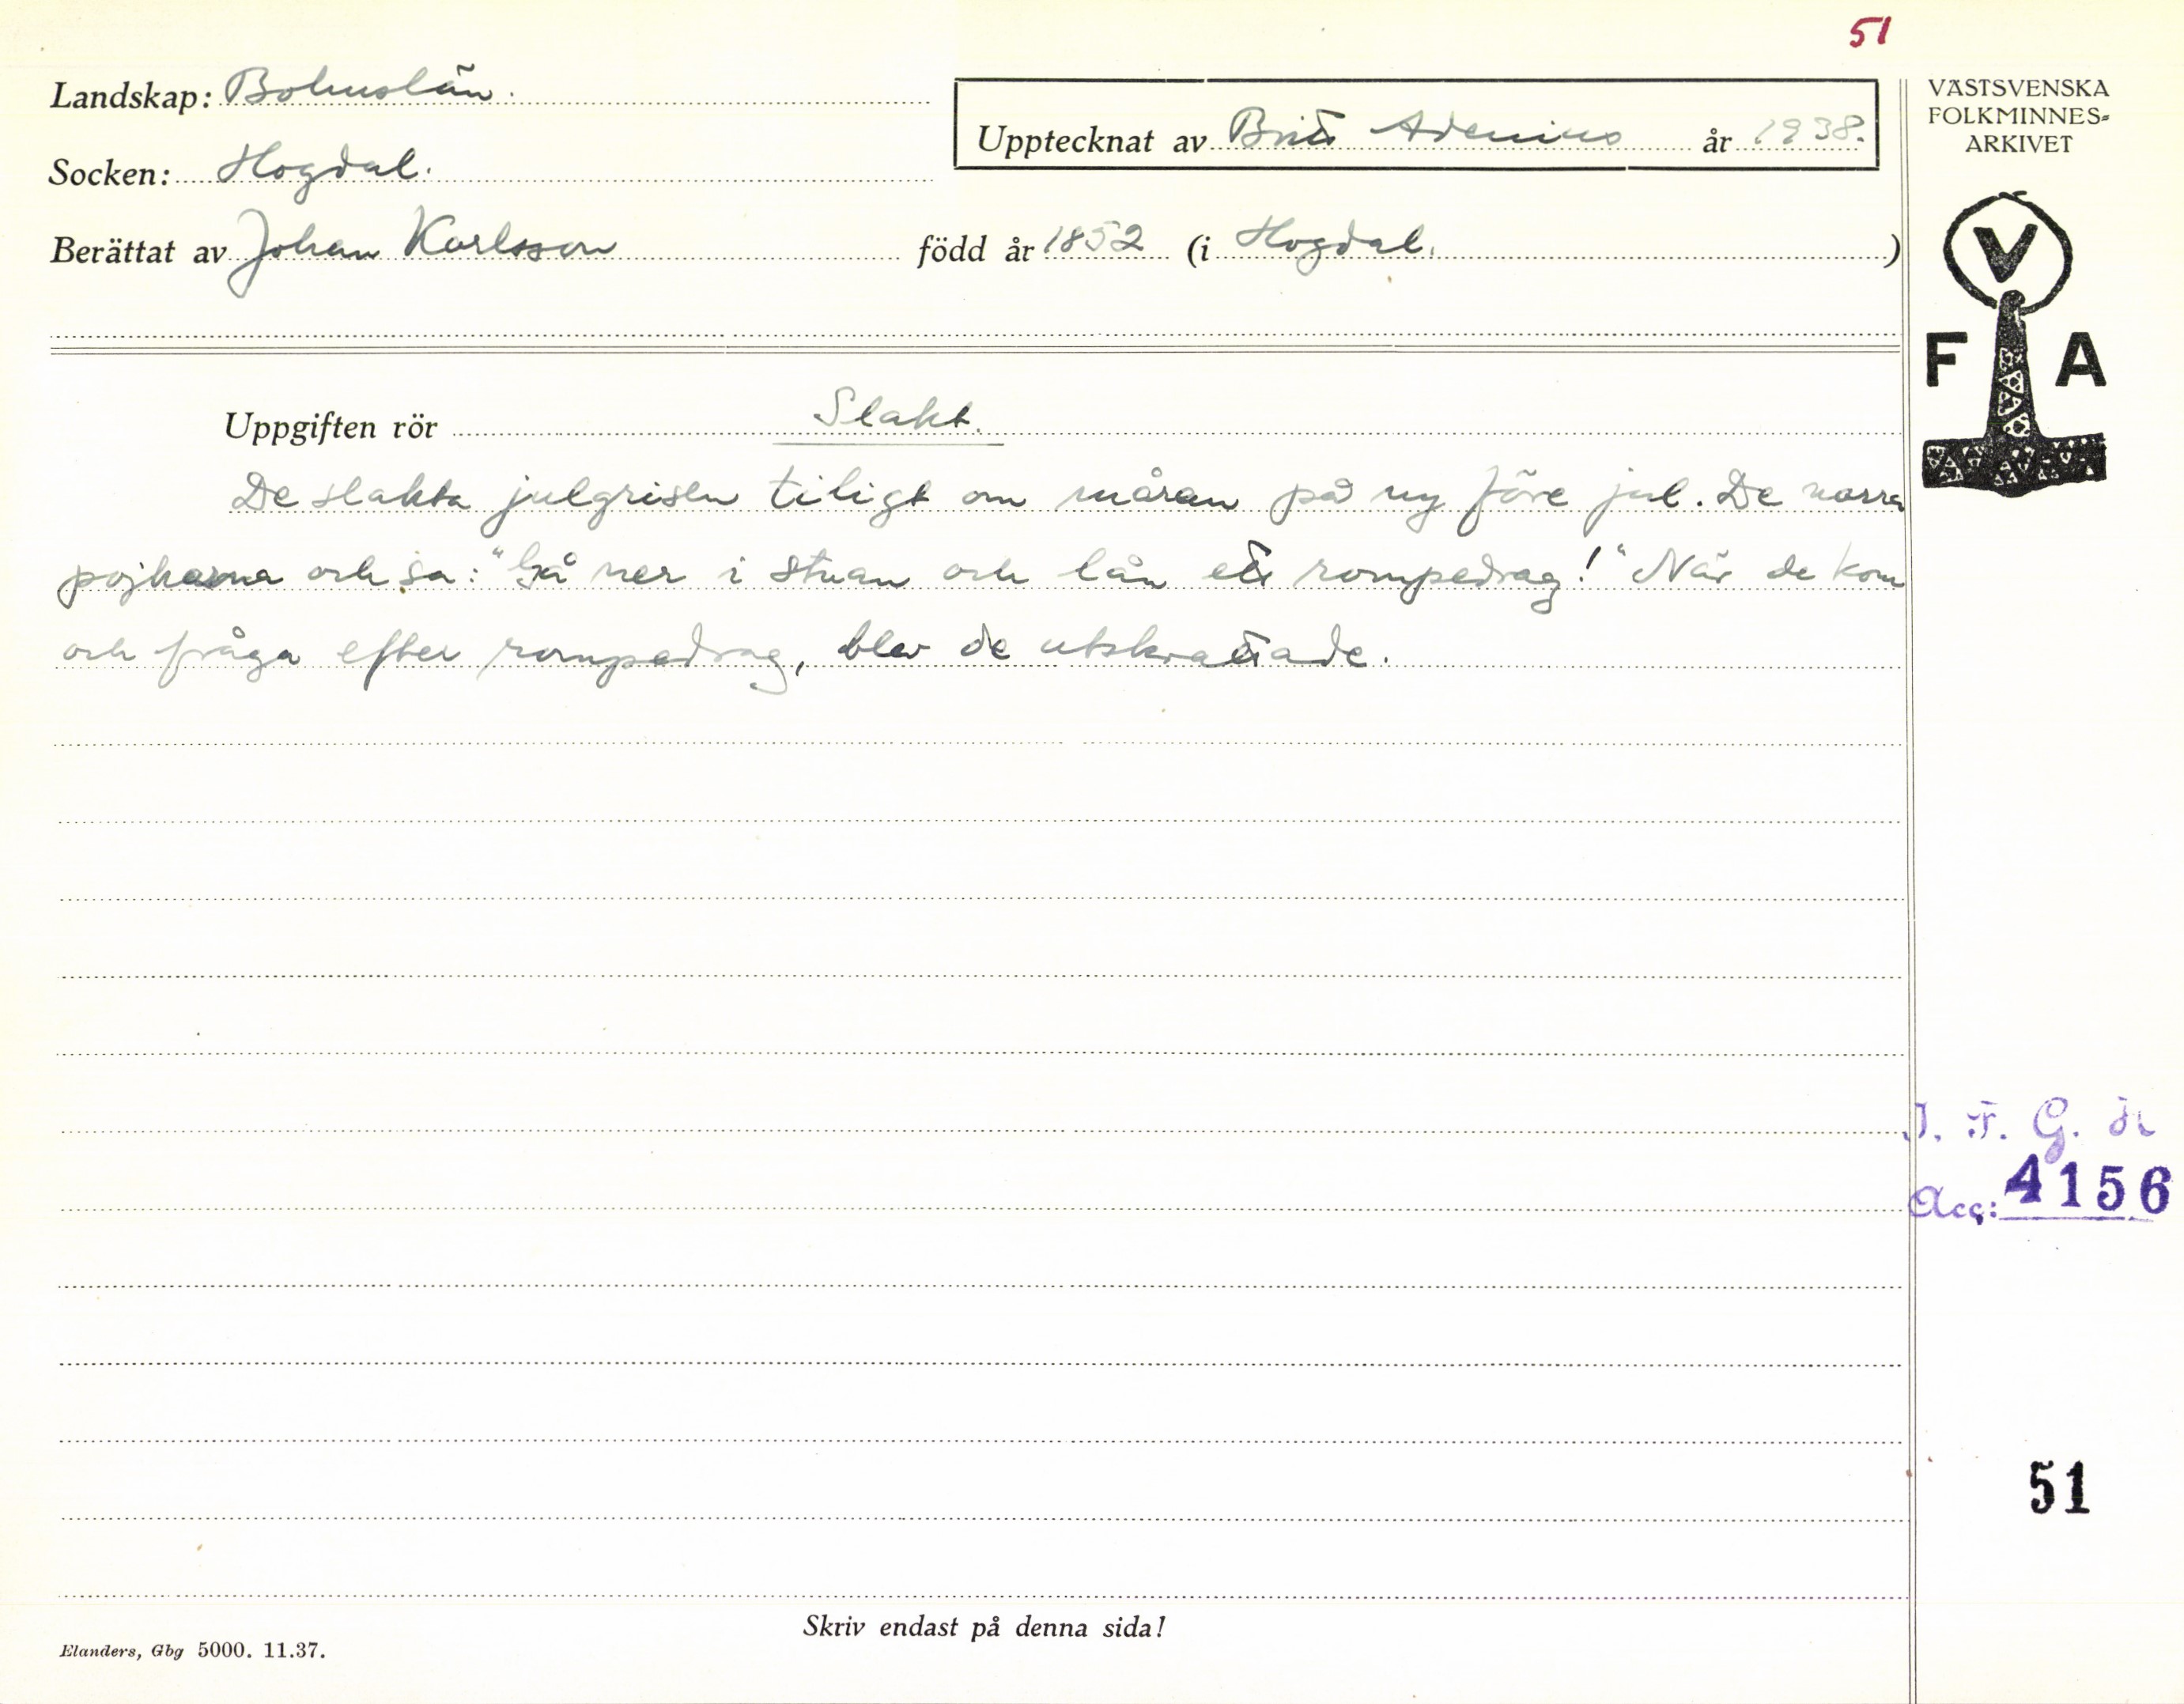 51
Landskap: Bohuslän.
Upptecknat av Britt Adenius år 1938.
Socken: Hogdal.
Berättat av Johan Karlsson född år 1852 (i Hogdal. )
VÄSTSVENSKA
FOLKMINNES=
ARKIVET
V
F A
Uppgiften rör Slakt.
De slakta julgrisen tiligt om måran på ny före jul. De narra
pojkarna och sa: "Gå ner i stuan och lån ett rompedrag!" När de kom
och fråga efter rompedrag, blev de utskrattade.
I. F. G. nr
Acc: 4156
51
Skriv endast på denna sida!
Elanders, Gbg 5000. 11.37.